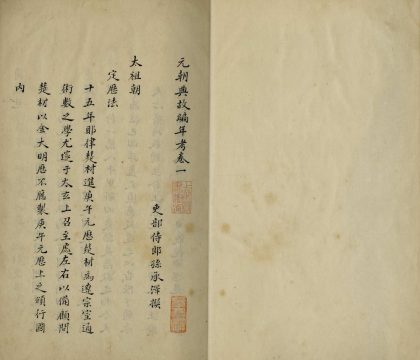 元朝典故編年考卷一
吏部侍郎孫承澤撰
太祖朝
定厯法
十五年耶律楚材進庚午元厯楚材為遼宗室通
術數之學尤邃于太玄上召至處左右以備顧問
楚材以金大明厯不應製庚午元厯上之頒行國
内